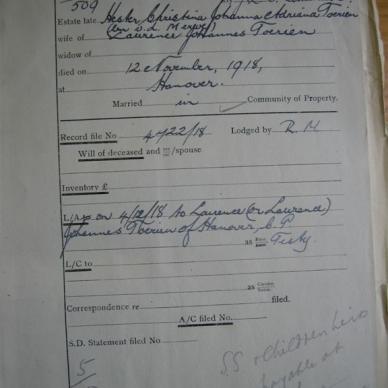 509
Estate late Hester Christina Johanna Adriana Toerien
(born v.d. Merwe)
wife of Laurence Johannes Toerien
widow of
died on 12 November, 1918,
at Hanover.
Married in Community of Property.
Record file No 4722/18 Lodged by R. M
Will of deceased and /spouse
Inventory £
L/A on 4/ /18 to Laurence (or Lawrence)
Johannes Toerien of Hanover, C.P
as Testy.
L/C to
as
Correspondence re filed.
A/C filed No.
S.D. Statement filed No.
5
SS children heirs
payable at